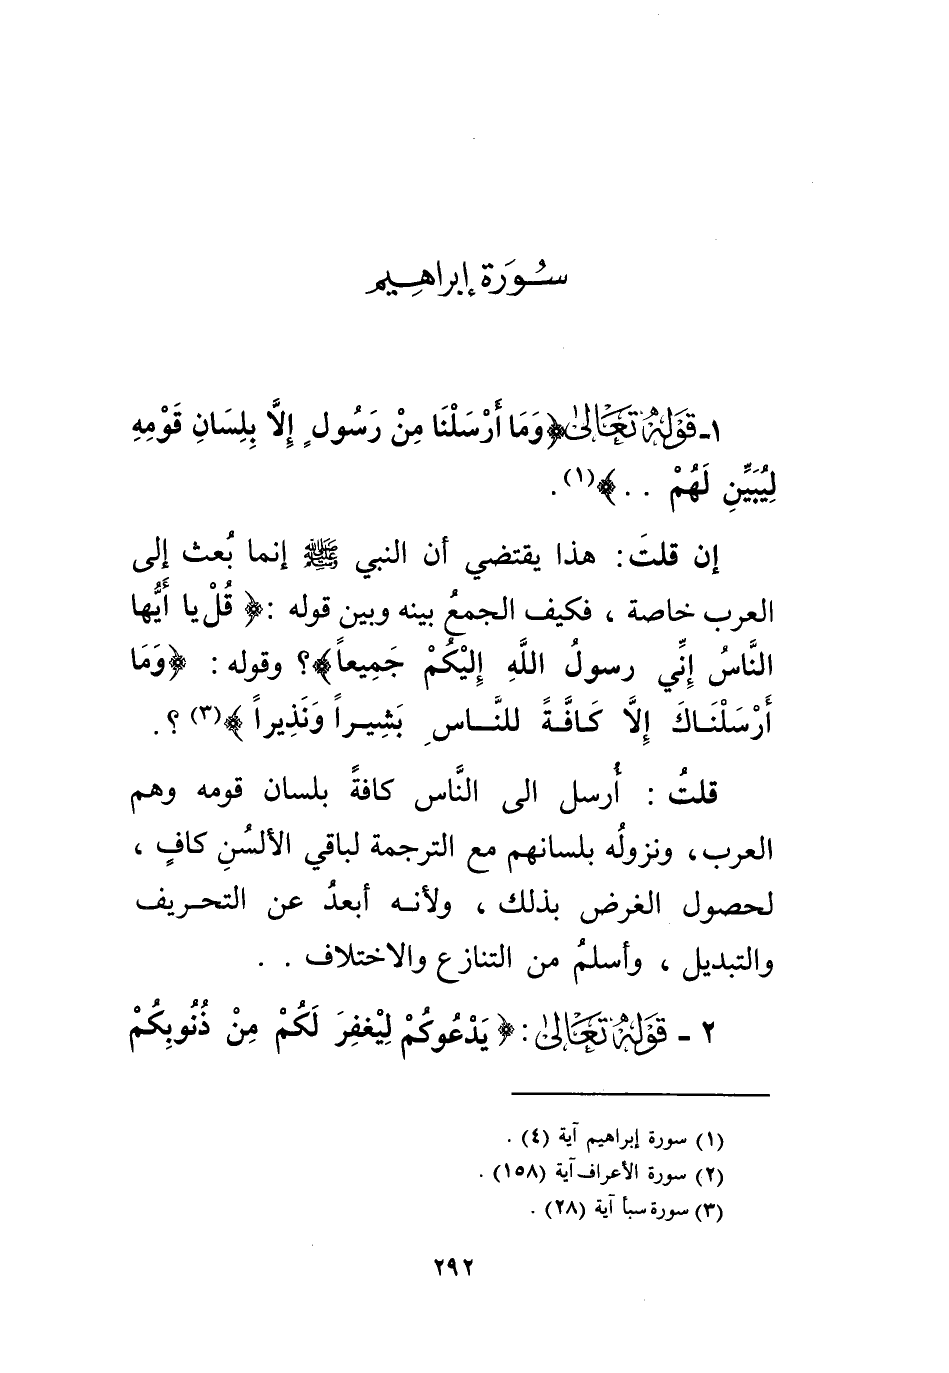 سُورَة إبراهِيم
١- قَوْلُهُ تَعَالَىٰ ﴿وَمَا أَرْسَلْنَا مِنْ رَسُولٍ إِلَّا بِلِسَانِ قَوْمِهِ
لِيُبَيِّنِ لَهُمْ . . ﴾(١) .
إن قلتَ : هذا يقتضي أن النبي ﷺ إنما بُعث إلى
العرب خاصة ، فكيف الجمعُ بينه وبين قوله :﴿ قُلْ يا أَيُّها
النَّاسُ إِنِّي رسولُ اللَّهِ إِلَيْكُمْ جَمِيعاً﴾؟ وقوله : ﴿وَمَا
أَرْسَلْنَاكَ إِلَّا كَافَّةً للنَّاسِ بَشِيراً وَنَذِيراً ﴾(٣) ؟ .
قلتُ : أُرسل الى النَّاس كافةً بلسان قومه وهم
العرب، ونزولُه بلسانهم مع الترجمة لباقي الألسُنِ كافٍ ،
لحصول الغرض بذلك ، ولأنه أبعدُ عن التحريف
والتبديل ، وأسلمُ من التنازع والاختلاف . .
٢ - قَوْلُهُ تَعَالَىٰ : ﴿ يَدْعُوكُمْ لِيْغفِرَ لَكُمْ مِنْ ذُنُوبِكُمْ
(١) سورة إبراهيم آية (٤) .
(٢) سورة الأعراف آية (١٥٨) .
(٣) سورة سبأ آية (٢٨) .
٢٩٢